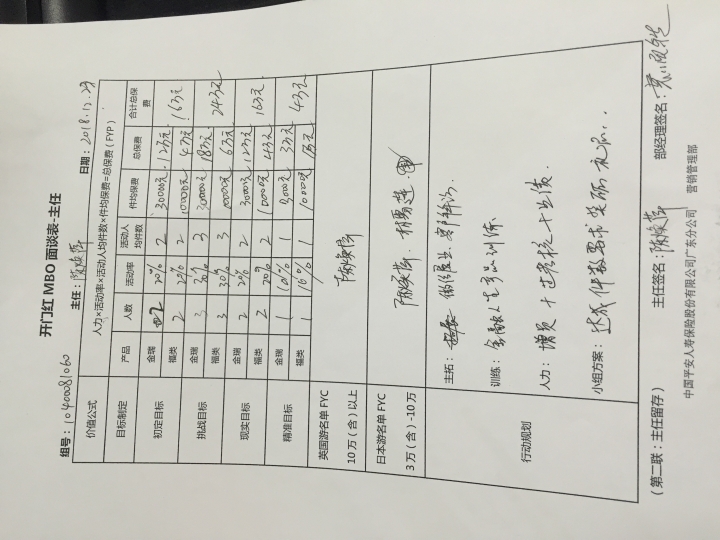 开门红 MBO 面谈表-主任
组号：10400081060 主任：陈焕萍 日期：2018.12.29
价值公式 人力×活动率×活动人均件数×件均保费=总保费（FYP）
目标制定 产品 人数 活动率 活动人均件数 件均保费 总保费 合计总保费
初定目标 金瑞 2 20% 2 30000元 12万元 16万元
福类 2 20% 2 10000元 4万元
挑战目标 金瑞 3 30% 3 20000元 18万元 24万元
福类 3 30% 3 6万元
现实目标 金瑞 2 20% 2 30000元 12万元 16万元
福类 2 20% 2 10000元 4万元
精准目标 金瑞 1 10% 1 3万元 4万元
福类 1 10% 1 10000元
英国游名单 FYC
10 万（含）以上 陈焕萍
日本游名单 FYC
3 万（含）-10 万 陈焕萍
行动规划
主拓：
训练：
人力：增员十
小组方案：达成件数要求奖励
（第二联：主任留存） 主任签名：陈焕萍 部经理签名：
中国平安人寿保险股份有限公司广东分公司 营销管理部